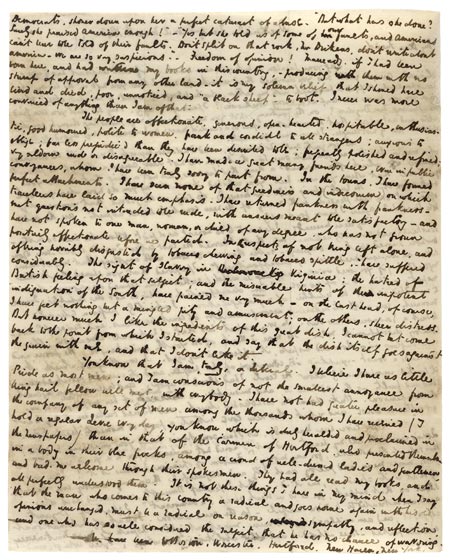 Democrats, shower down upon her a perfect cataract of abuse. "But what has she done?
Surely she praised America enough!" – "Yes but she told us of some of our faults, and Americans
can't bear to be told of their faults. Don't split on that rock, Mr Dickens, don't write about
America – we are so very suspicious." – Freedom of opinion! Macready, if I had been
born here, and had written my books in this country, – producing them with no
stamp of approval from any other land – it is my solemn belief that I should have
lived and died, poor, unnoticed, and "a black sheep" – to boot. I never was more
convinced of anything than I am of that.
The people are affectionate, generous, open hearted, hospitable, enthusias-
tic, good humoured, polite to women, frank and cordial to all strangers; anxious to
oblige; far less prejudiced than they have been described to be; frequently polished and refined,
very seldom rude or disagreeable. I have made a great many friends here, even in public
conveyances, whom I have been truly sorry to part from. In the towns, I have formed
perfect attachments. I have seen none of that greediness and indecorum on which
travellers have laid so much emphasis. I have returned frankness with frankness –
met questions not intended to be rude, with answers meant to be satisfactory – and
have not spoken to one man, woman, or child of any degree, who has not grown
positively affectionate before we parted. In the respects of not being left alone, and
of being horribly disgusted by tobacco chewing and tobacco spittle, I have suffered
considerably. The sight of Slavery in Virginia; the hatred of
British feeling upon that subject; and the miserable hints of the impotent
indignation of the South, have pained me very much – on the last head, of course,
I have felt nothing but a mingled pity and amusement; on the others, sheer distress.
But however much I like the ingredients of this great dish, I cannot but come
back to the point from which I started, and say that the dish itself goes against
the grain with me, and that I don't like it.
You know that I am, truly, a Liberal. I believe I have as little
Pride as most men; and I am conscious of not the smallest annoyance from
being hail fellow well met, with everybody. I have not had greater pleasure in
the company of any set of men among the thousands whom I have received (I
hold a regular Levee every day, you know, which is duly heralded and proclaimed in
the Newspapers) than in that of the Carmen of Hertford, who presented themselves
in a body in their blue frocks, among a crowd of well-dressed ladies and gentlemen,
and bade me welcome through their spokesman. They had all read my books, and
all perfectly understood them. It is not these things I have in my mind when I say
that the man who comes to this Country a Radical and goes home again with his
opinions unchanged, must be a Radical on reason, sympathy, and reflection,
and one who has so well considered the subject, that he has no chance of wavering.
We have been to Boston, Worcester, Hertford, New Haven, New York,